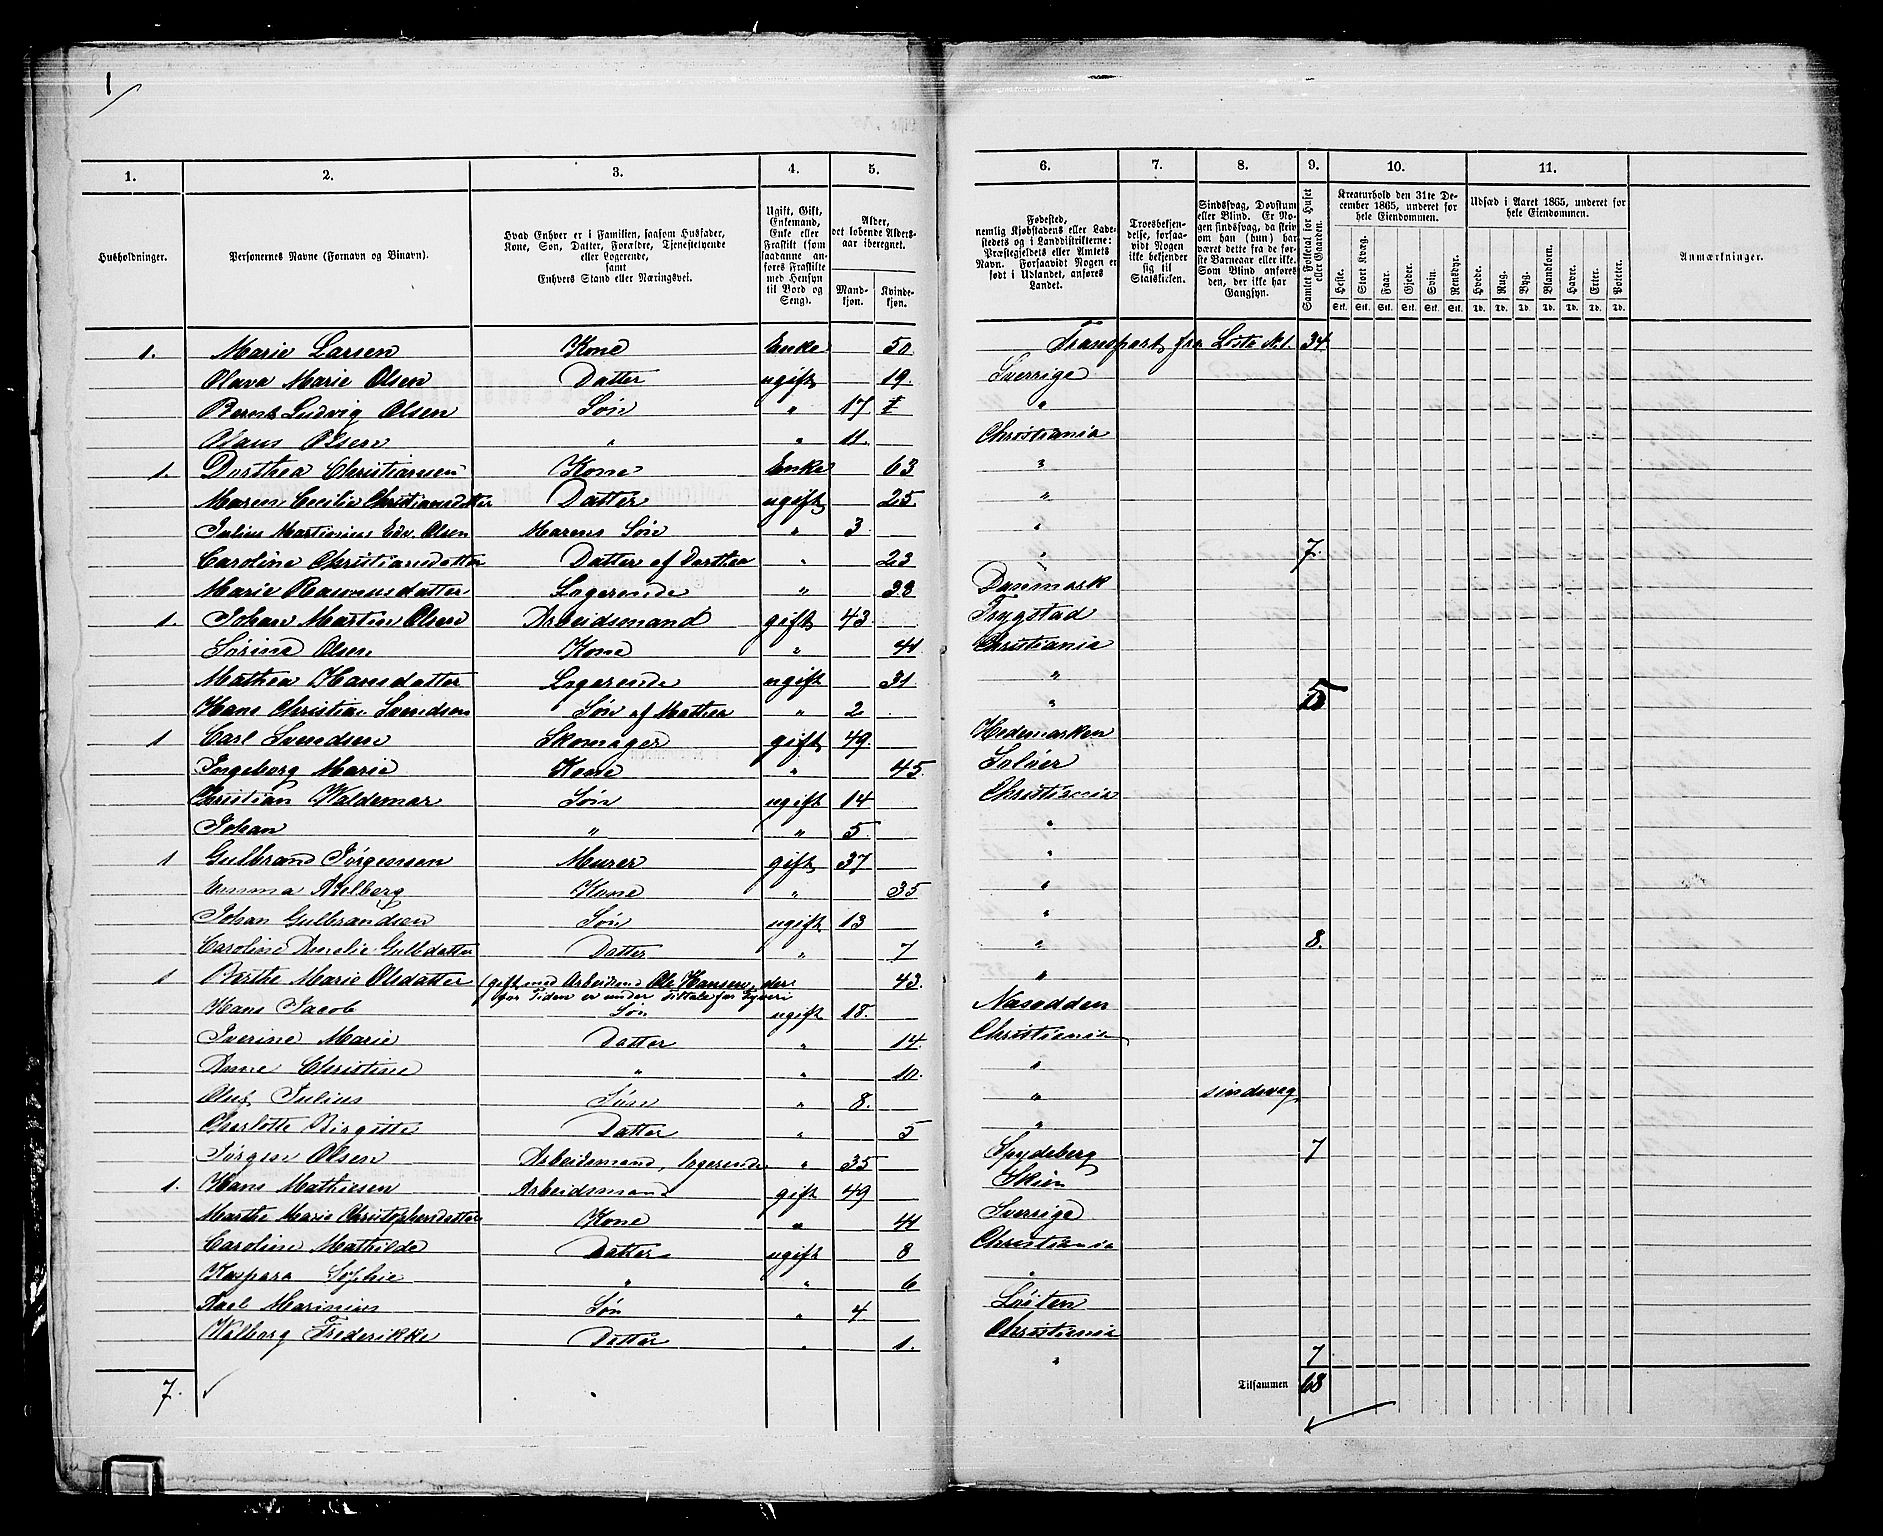 1
1. 2. 3. 4. 5.
Husholdninger.
Personernes Navne (Fornavn og Binavn).
Hvad Enhver er i Familien, saasom Husfader, Kone, Søn, Datter, Forældre, Tjenestetyende eller Logerende, samt Enhvers Stand eller Næringsvei.
Ugift, Gift, Enkemand, Enke eller Fraskilt (som saadanne anføres Fraskilte med Hensyn til Bord og Seng).
Alder, det løbende Aldersaar iberegnet.
Mandkjøn. Kvindekjøn.
1. Marie Larsen Kone Enke 50
Olava Marie Olsen Datter ugift 19.
Bernt Ludvig Olsen Søn " 17
Olaus Olsen " " 11.
1. Dorthea Christiansen Kone Enke 63
Maren Cecilie Christiansdatter Datter ugift 25
Julius Martinius Edv. Olsen Marens Søn " 3
Caroline Christiansdatter Datter af Dorthea " 23
Marie Rasmusdatter Logerende " 33
1. Johan Martin Olsen Arbeidsmand gift 43
Sørine Olsen Kone " 41
Mathea Hansdatter Logerende ugift 31
Hans Christian Svendsen Søn af Mathea " 2
1 Carl Svendsen Skomager gift 49.
Ingeborg Marie Kone " 45
Christian Waldemar Søn ugift 14
Johan " " 5.
1 Gulbrand Jørgensen Murer gift 37
Emma Kone " 35
Johan Gulbrandsen Søn ugift 13
Caroline Amalie Gulbdatter Datter " 7
1 Berthe Marie Olsdatter (gift med Arbeidsmd Ole Hansen, der 43
for Tiden er under Tiltale for Tyveri
Hans Jacob Søn ugift 18.
Iverine Marie Datter " 14.
Anne Christine " " 10.
Julius Søn " 8.
Charlotte Birgitte Datter " 5
Jørgen Olsen Arbeidsmand, logerende " 35
1. Hans Mathiesen Arbeidsmand gift 49
Marthe Marie Christophersdatter Kone " 41
Caroline Mathilde Datter ugift 8
Kaspara Sophie " " 6
Axel Marinius Søn " 4
Walborg Frederikke Datter " 1.
7.
6. 7. 8. 9. 10. 11.
Fødested, nemlig Kjøbstadens eller Ladestedets og i Landdistrikterne: Præstegjeldets eller Amtets Navn. Forsaavidt Nogen er født i Udlandet, anføres Landet.
Troesbekjendelse, forsaavidt Nogen ikke bekjender sig til Statskirken.
Sindssvag, Døvstum eller Blind. Er Nogen sindssvag, da skriv om han (hun) har været dette fra de første Barneaar eller ikke. Som Blind anføres den, der ikke har Gangsyn.
Samlet Folketal for Huset eller Gaarden.
Kreaturhold den 31te December 1865, underet for hele Eiendommen.
Heste. Stort Kvæg. Faar. Gjeder. Svin. Rensdyr.
Stk. Stk. Stk. Stk. Stk. Stk.
Udsæd i Aaret 1865, underet for hele Eiendommen.
Hvede. Rug. Byg. Blandkorn. Havre. Erter. Poteter.
Td. Td. Td. Td. Td. Td. Td.
Anmærkninger.
Transport fra Liste N. 1. 34
Sverrige
"
Christiania
"
"
"
" 7.
Danmark
Trygstad
Christiania
"
" 5
Hedemarken
Soløer
Christiania
"
"
"
"
" 8.
"
Nasodden
Christiania
"
" sindsvag
"
Spydeberg 7
Skien
Sverrige
Christiania
"
Løiten
Christiania
" 7
Tilsammen 68